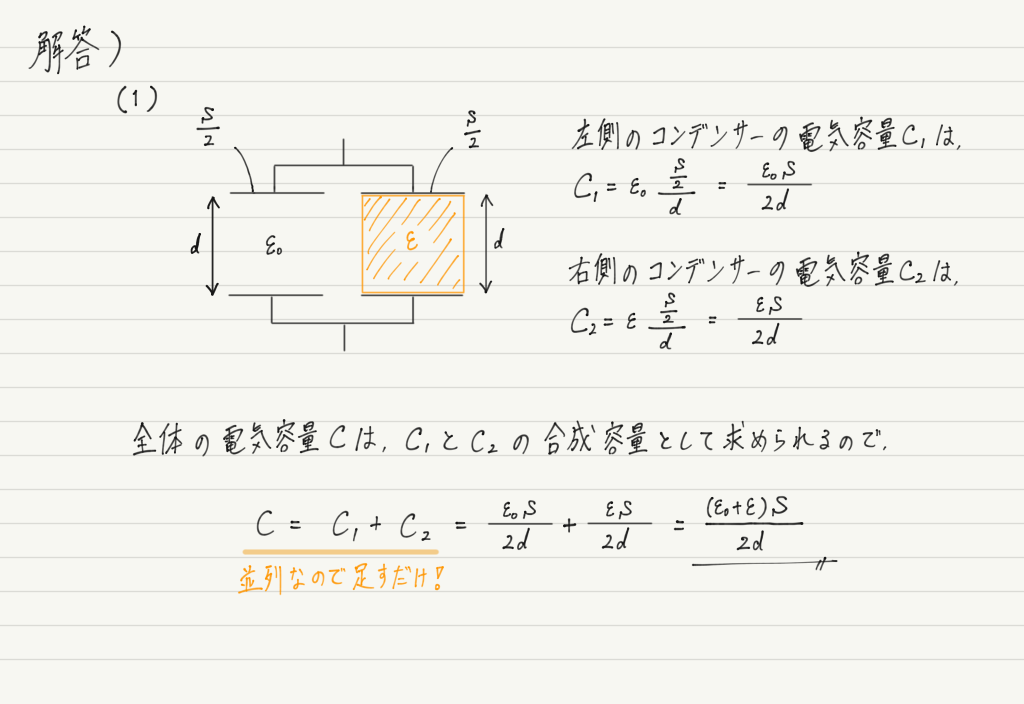 解答)
(1)
S/2
S/2
d
ε₀
ε
d
左側のコンデンサーの電気容量C₁は,
C₁ = ε₀ (S/2)/d = ε₀S/2d
右側のコンデンサーの電気容量C₂は,
C₂ = ε (S/2)/d = εS/2d
全体の電気容量Cは, C₁とC₂の合成容量として求められるので,
C = C₁ + C₂ = ε₀S/2d + εS/2d = (ε₀+ε)S/2d
並列なので足すだけ!